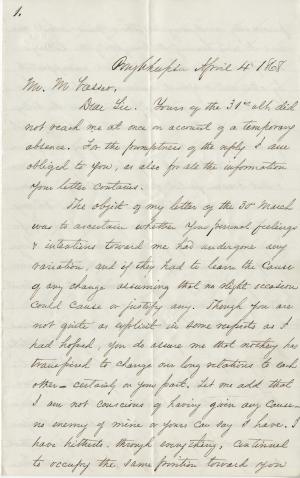 1.
Poughkeepsie April 4th 1868
Mr. M Vassar,
Dear Sir. Yours of the 31st ult. did
not reach me at once on account of a temporary
absence. For the promptness of the reply I am
obliged to you, as also for all the information
your letter contains.
The object of my letter of the 30th March
was to ascertain whether your personal feelings
& intentions toward me had undergone any
variation, and if they had to learn the cause
of any change assuming that no slight occasion
could cause or justify any. Though you are
not quite as explicit in some respects as I
had hoped, you do assure me that nothing has
transpired to change our long relations to each
other – certainly on your part. Let me add that
I am not conscious of having given any cause –
no enemy of mine or yours can say I have. I
have hitherto, through everything, continued
to occupy the same position toward you